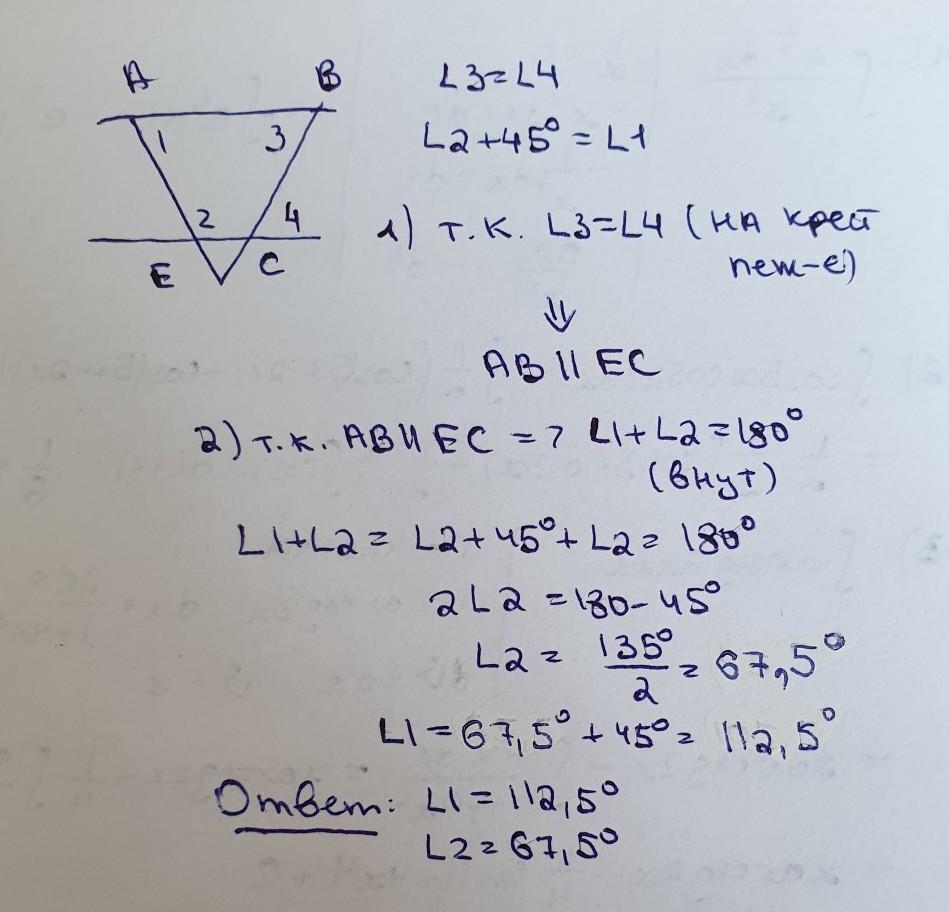 A B
1 3
2 4
E C
∠3=∠4
∠2+45°=∠1
1) т.к. ∠3=∠4 (на крест
леж-е)
⇓
AB || EC
2) т.к. AB || EC => ∠1+∠2=180°
(внут)
∠1+∠2= ∠2+45°+∠2= 180°
2∠2=180-45°
∠2= 135°/2 = 67,5°
∠1=67,5°+45°= 112,5°
Ответ: ∠1=112,5°
∠2=67,5°